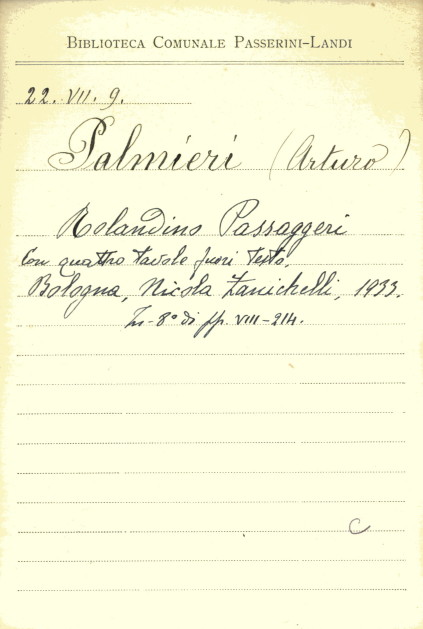 BIBLIOTECA COMUNALE PASSERINI-LANDI
22. VII. 9.
Palmieri (Arturo)
Rolandino Passaggeri
Con quattro tavole fuori testo.
Bologna, Nicola Zanichelli, 1933.
In-8° di pp. VIII-214.
C